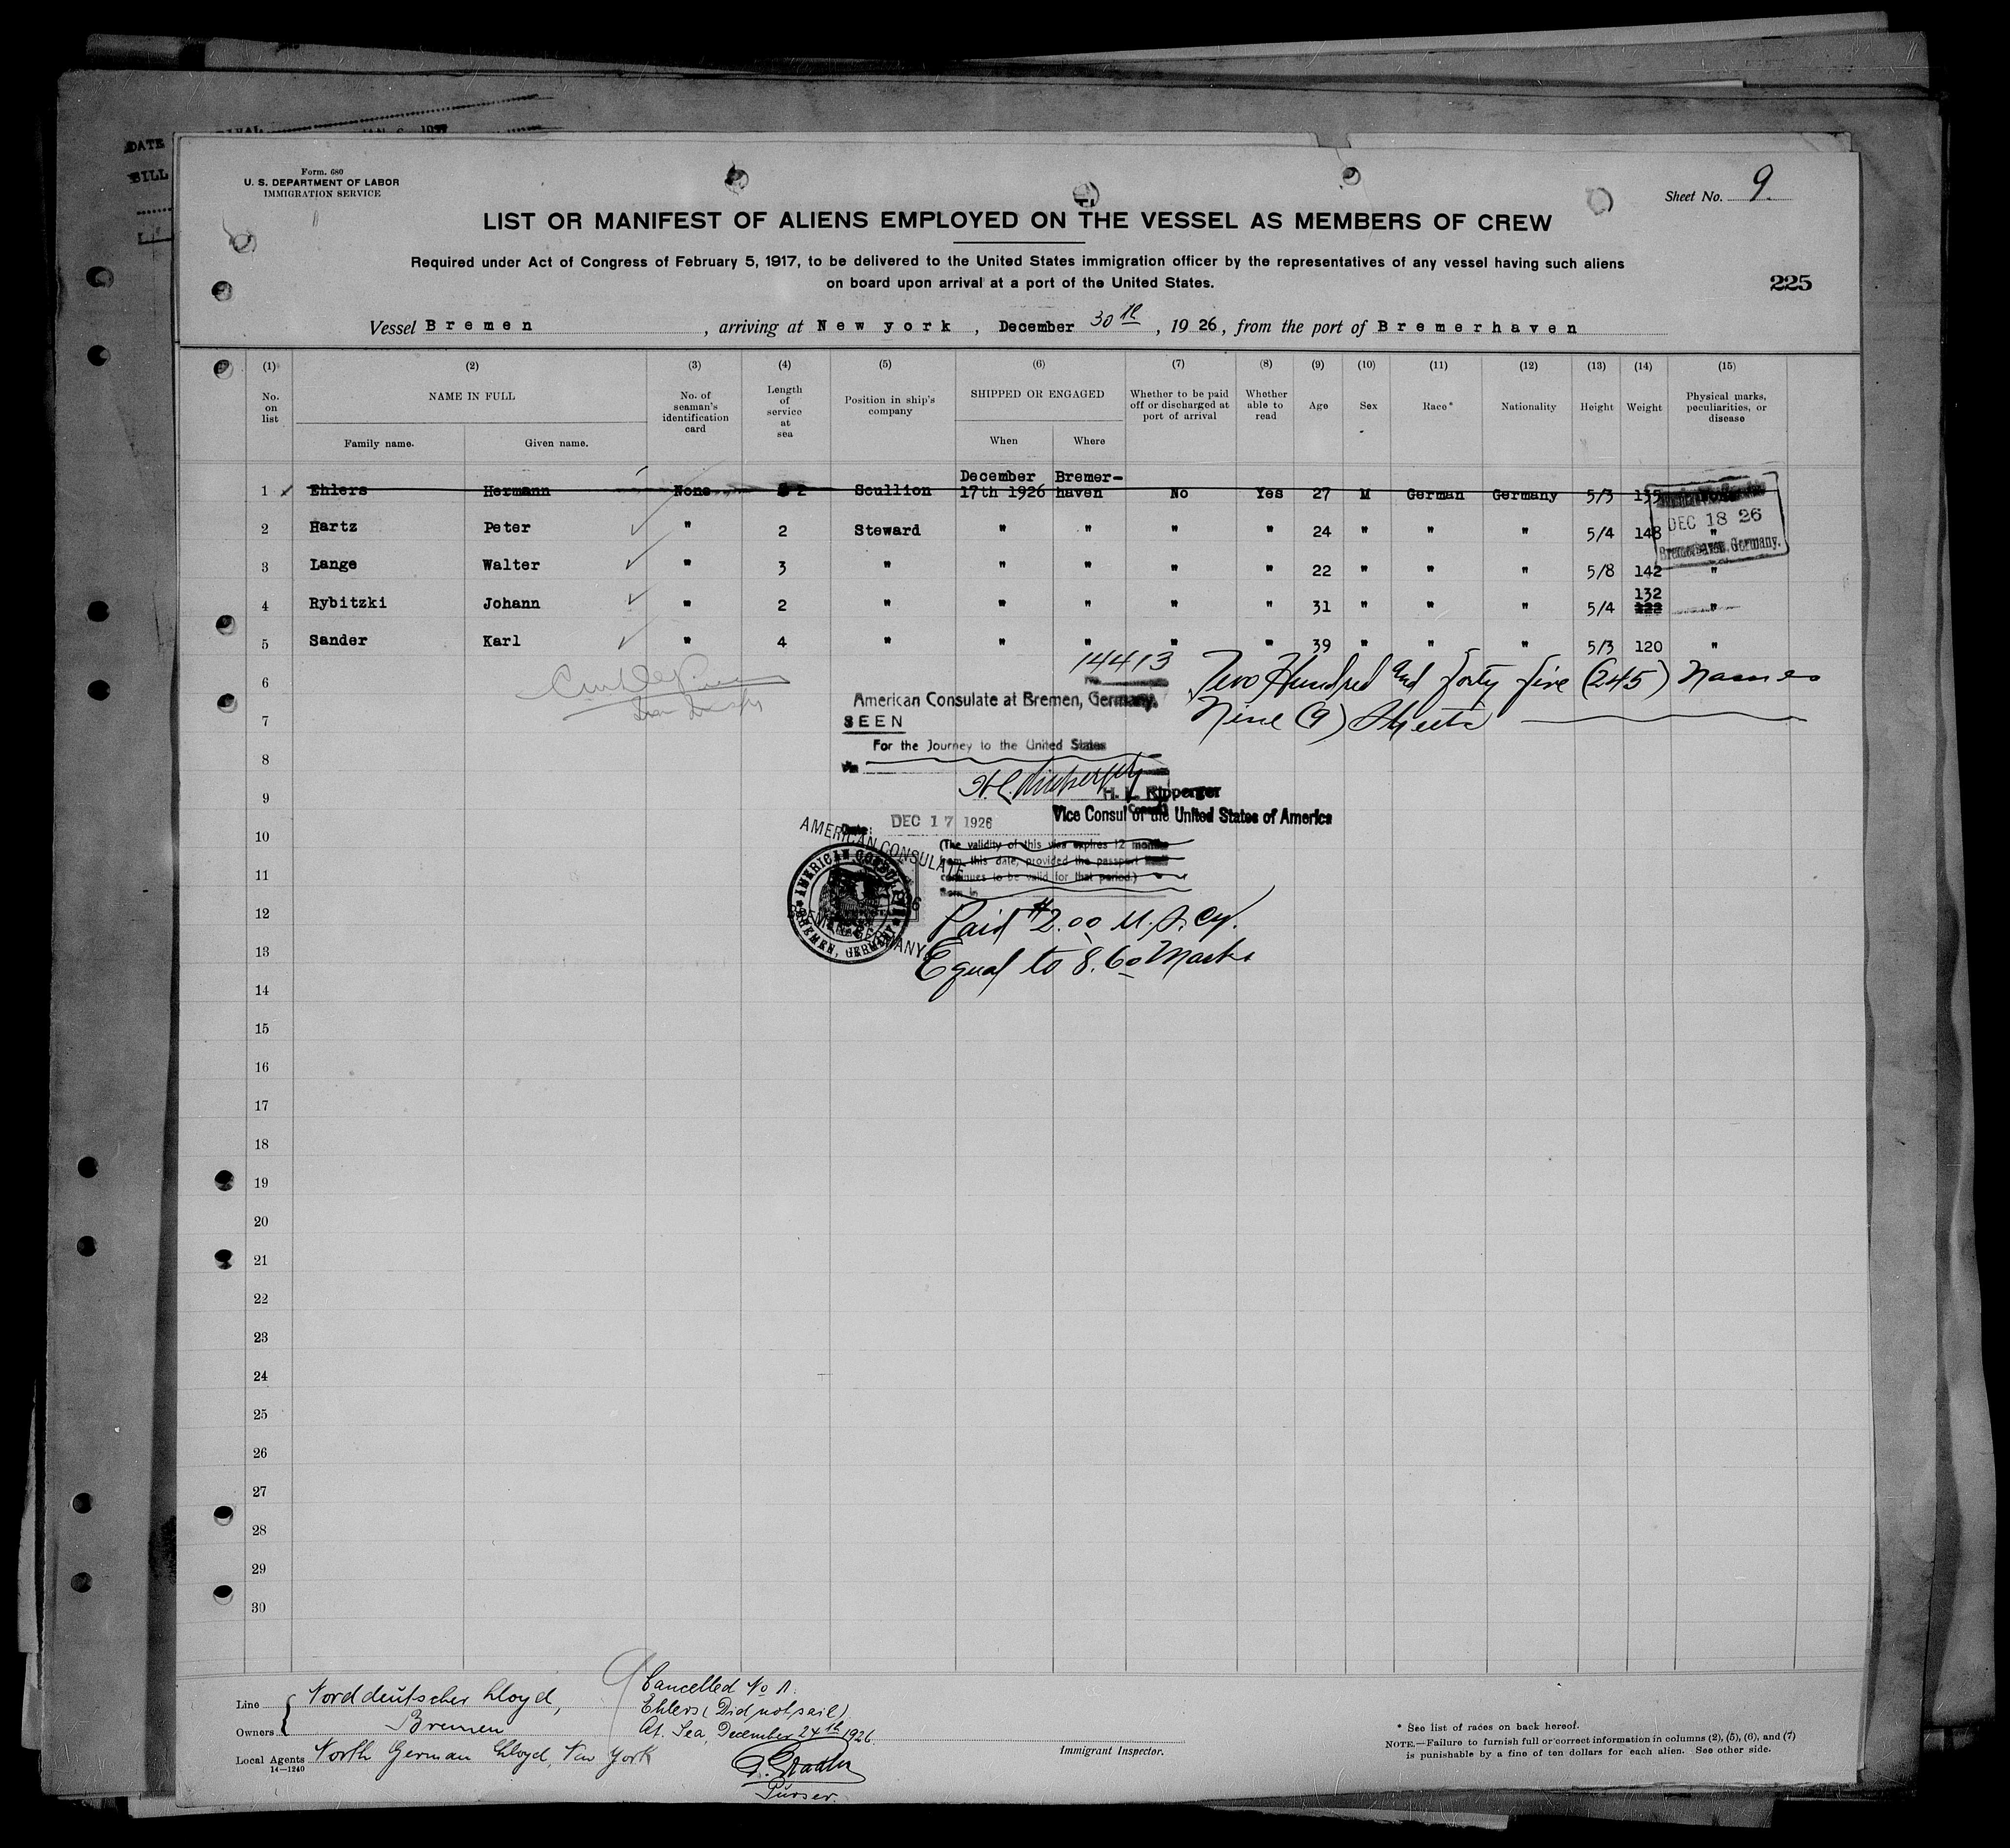 DATE
BILL
Form. 680
U. S. DEPARTMENT OF LABOR
IMMIGRATION SERVICE
Sheet No. 9.
LIST OR MANIFEST OF ALIENS EMPLOYED ON THE VESSEL AS MEMBERS OF CREW
Required under Act of Congress of February 5, 1917, to be delivered to the United States immigration officer by the representatives of any vessel having such aliens
on board upon arrival at a port of the United States.
225
Vessel Bremen, arriving at New york, December 30th, 1926, from the port of Bremerhaven
(1) (2) (3) (4) (5) (6) (7) (8) (9) (10) (11) (12) (13) (14) (15)
No. on list
NAME IN FULL
Family name. Given name.
No. of seaman's identification card
Length of service at sea
Position in ship's company
SHIPPED OR ENGAGED
When Where
Whether to be paid off or discharged at port of arrival
Whether able to read
Age
Sex
Race*
Nationality
Height
Weight
Physical marks, peculiarities, or disease
1 Ehlers Hermann None 2 Scullion December 17th 1926 Bremer-haven No Yes 27 M German Germany 5/3 135
2 Hartz Peter " 2 Steward " " " " 24 " " " 5/4 148 "
3 Lange Walter " 3 " " " " " 22 " " " 5/8 142 "
4 Rybitzki Johann " 2 " " " " " 31 " " " 5/4 132 "
5 Sander Karl " 4 " " " " " 39 " " " 5/3 120 "
DEC 18 26
Bremerhaven, Germany.
6
7
8
9
10
11
12
13
14
15
16
17
18
19
20
21
22
23
24
25
26
27
28
29
30
14413
Two Hundred and forty five (245) Names
Nine (9) Sheets
American Consulate at Bremen, Germany.
SEEN
For the Journey to the United States
H. L. Ripperger
Vice Consul of the United States of America
Date: DEC 17 1926
(The validity of this visa expires 12 months
from this date, provided the passport
continues to be valid for that period.)
Born in
AMERICAN CONSULATE
BREMEN, GERMANY
AMERICAN CONSULATE
BREMEN, GERMANY
Paid $2.00 U.S. Cy.
Equal to 8.60 Marks
Line Norddeutscher Lloyd,
Owners Bremen
Local Agents North German Lloyd, New York
14—1240
Cancelled No 1.
Ehlers (Did not sail)
At. Sea, December 24th 1926.
Purser.
Immigrant Inspector.
* See list of races on back hereof.
NOTE.—Failure to furnish full or correct information in columns (2), (5), (6), and (7)
is punishable by a fine of ten dollars for each alien. See other side.